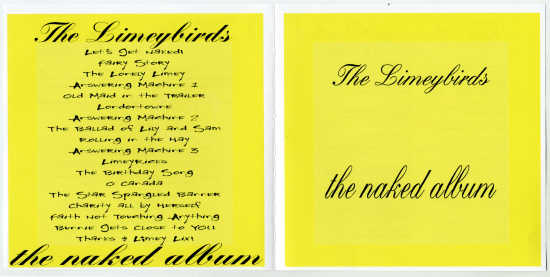 The Limeybirds
Let's Get Naked!
Fairy Story
The Lonely Limey
Answering Machine 1
Old Maid in the Trailer
Londontowne
Answering Machine 2
The Ballad of Lily and Sam
Rolling in the Hay
Answering Machine 3
Limeyricks
The Birthday Song
O Canada
The Star Spangled Banner
Charity all by Herself
Faith Not Touching Anything
Bunnie Gets Close to You
Thanks 2 Limey Lixi
the naked album
The Limeybirds
the naked album